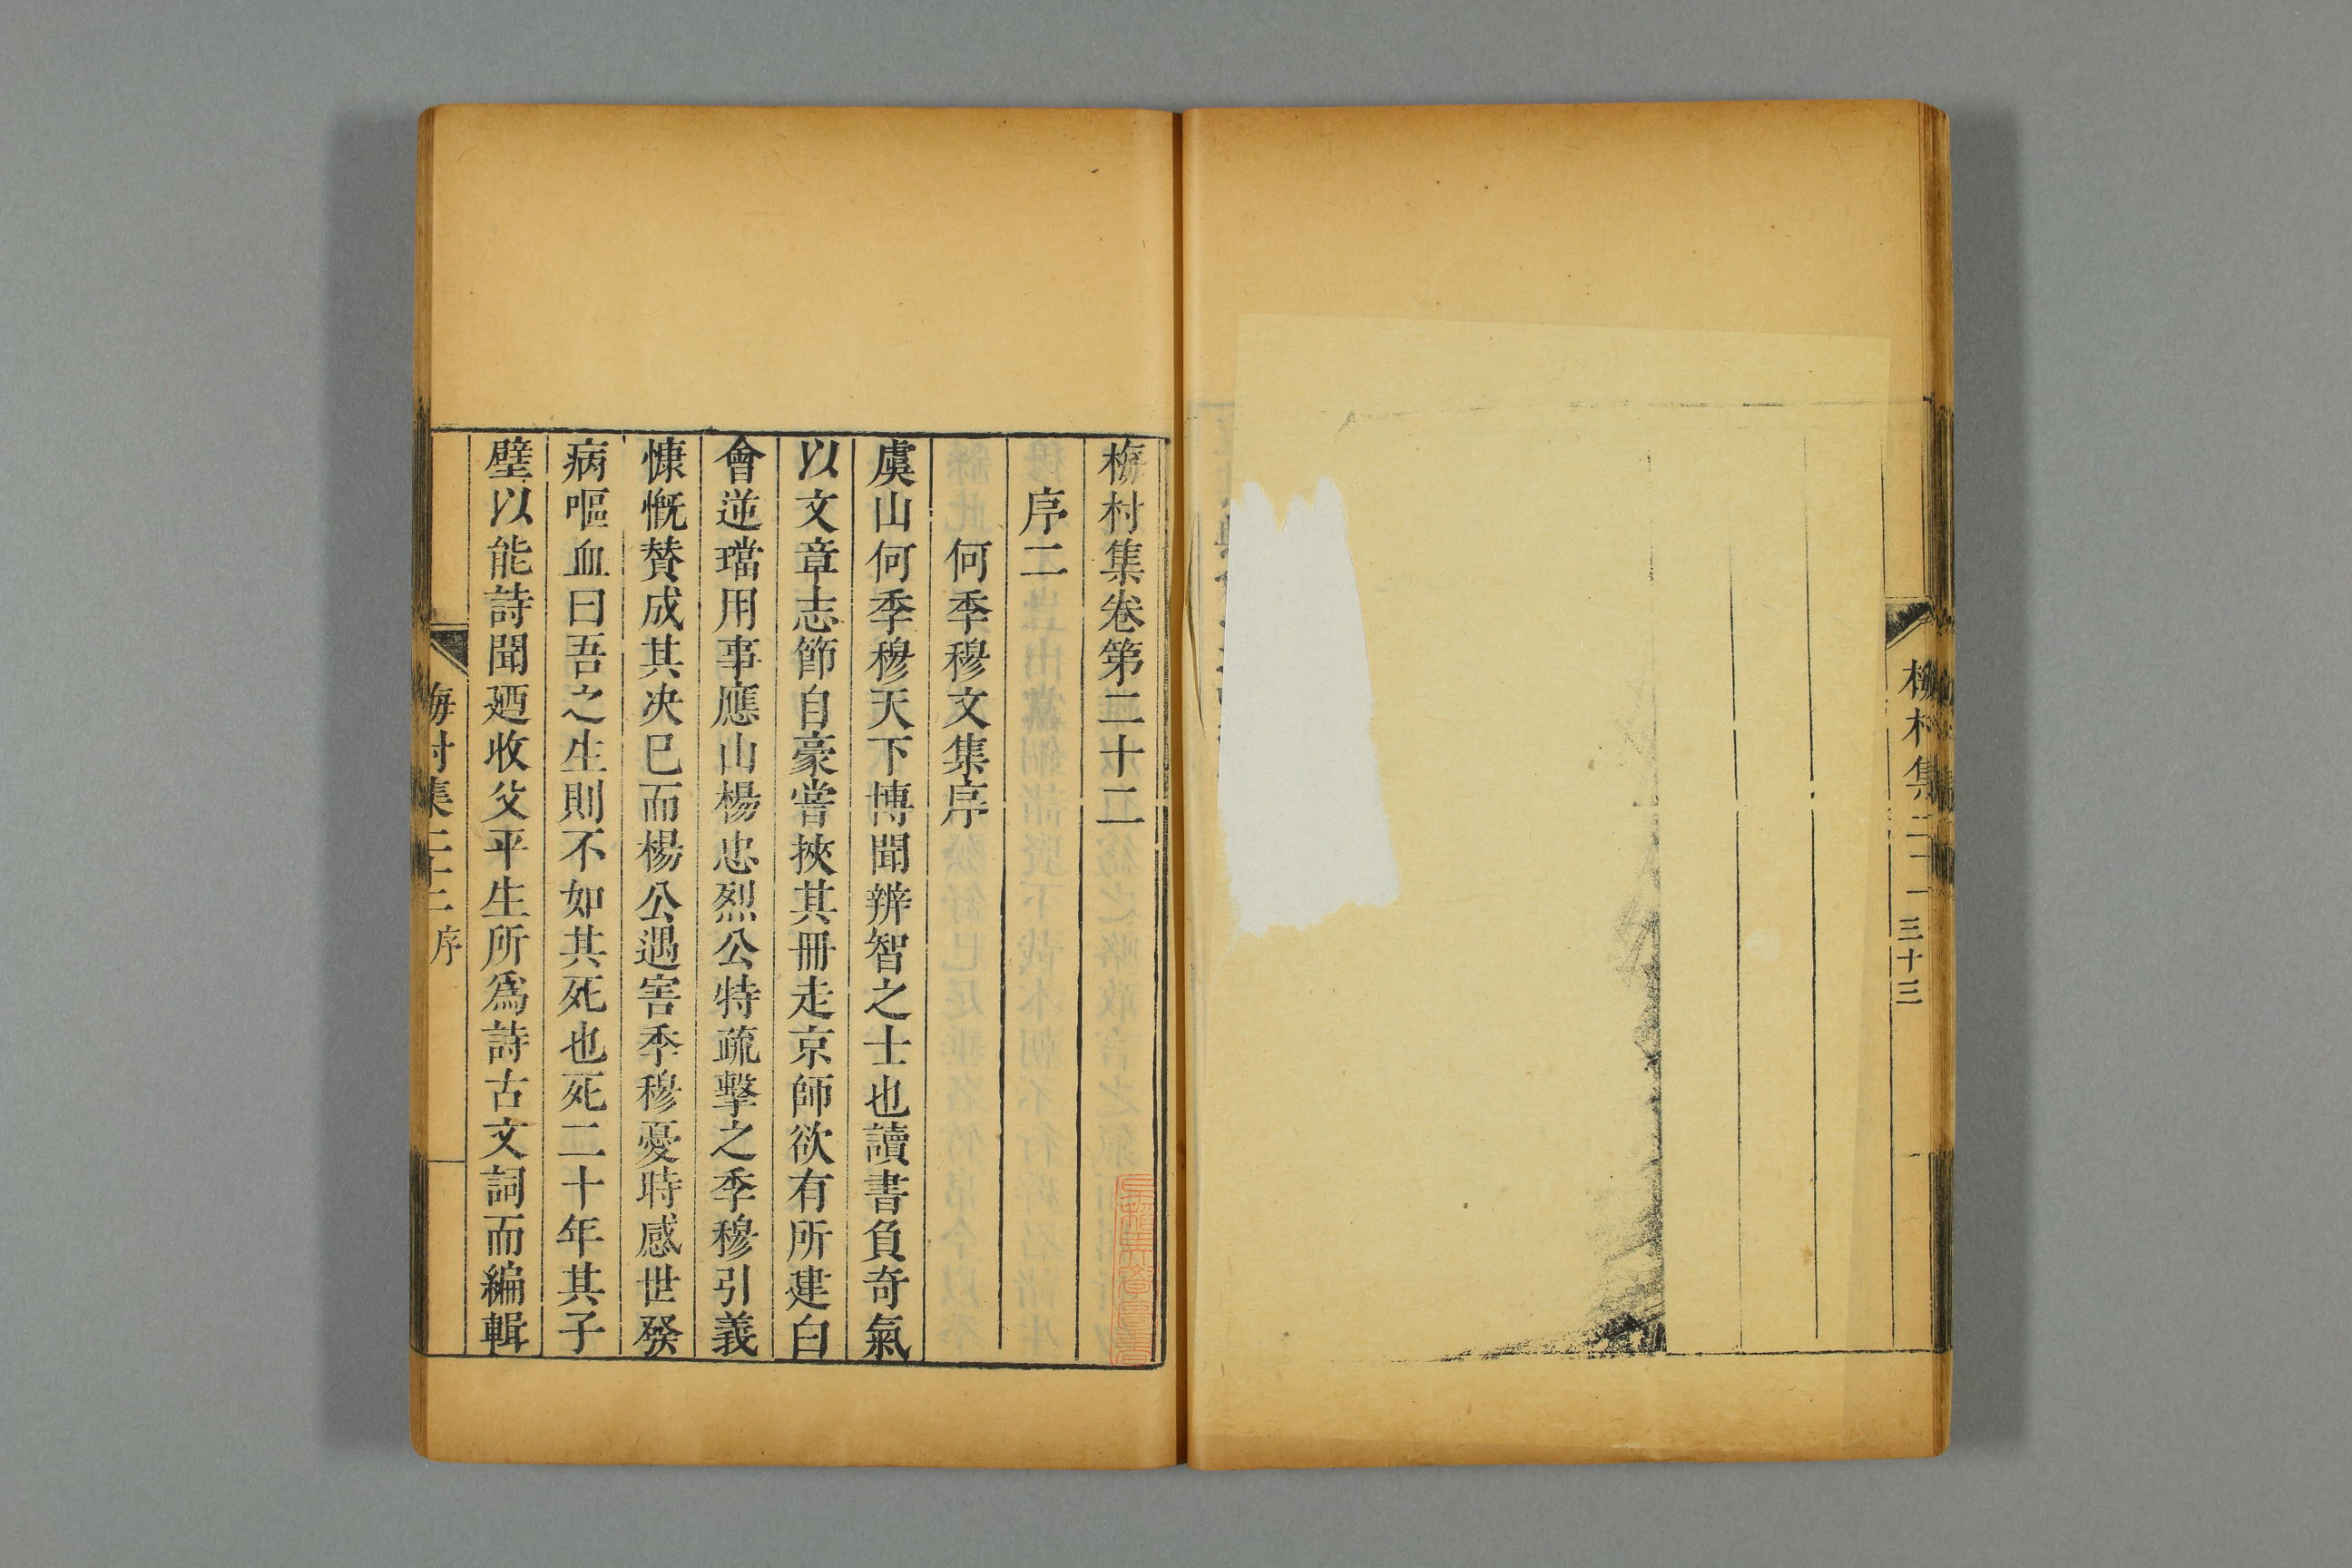 梅村集二十一
三十三
梅村集卷第二十二
序二
何季穆文集序
虞山何季穆天下博聞辨智之士也讀書負奇氣
以文章志節自豪嘗挾其冊走京師欲有所建白
會逆璫用事應山楊忠烈公特疏擊之季穆引義
慷慨賛成其决巳而楊公遇害季穆憂時感世發
病嘔血曰吾之生則不如其死也死二十年其子
璧以能詩聞廼收父平生所爲詩古文詞而編輯
梅村集二十二序